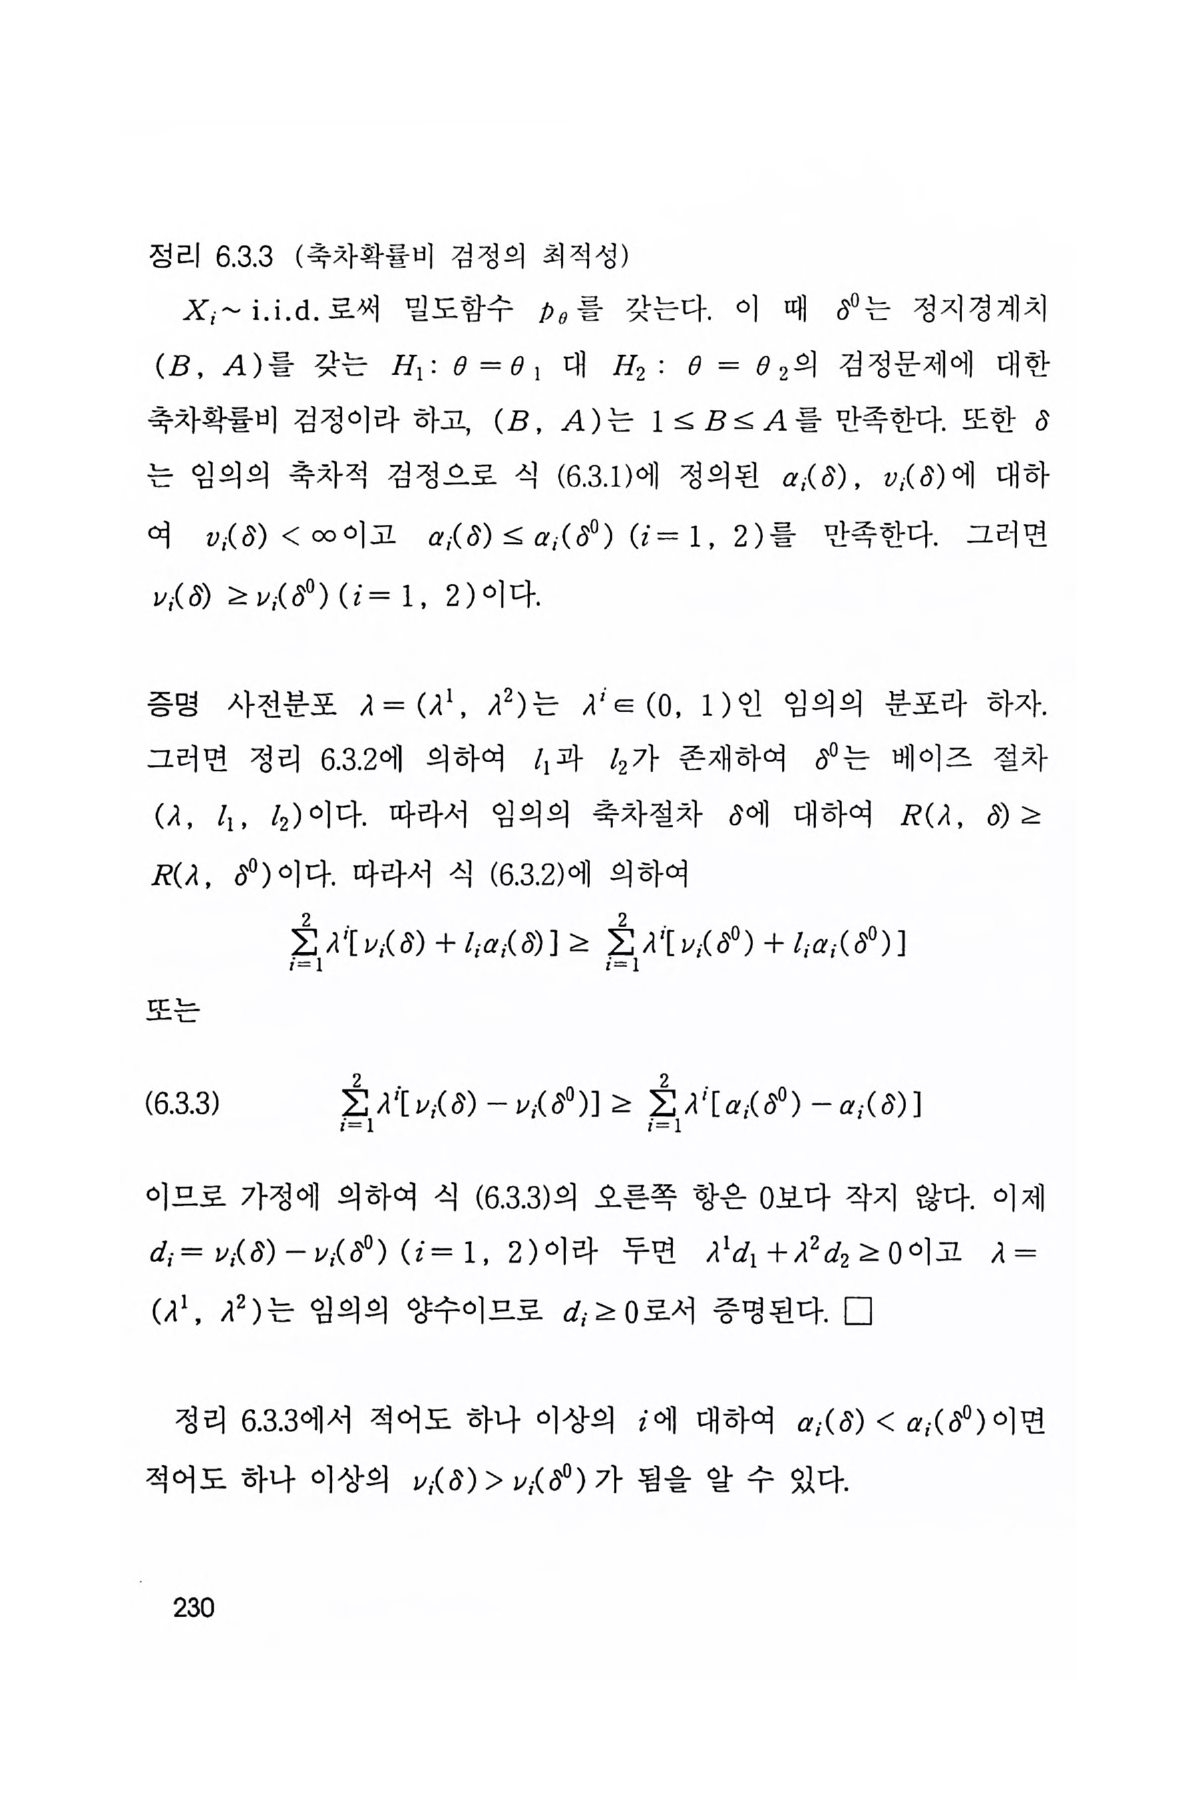 정리 6.3.3 (축차확률비 검정의 최적성)
X_i ~ i.i.d. 로써 밀도함수 p_θ를 갖는다. 이 때 δ⁰는 정지경계치
(B, A)를 갖는 H₁: θ = θ₁ 대 H₂ : θ = θ₂의 검정문제에 대한
축차확률비 검정이라 하고, (B, A)는 1 ≤ B ≤ A를 만족한다. 또한 δ
는 임의의 축차적 검정으로 식 (6.3.1)에 정의된 α_i(δ), υ_i(δ)에 대하
여 υ_i(δ) < ∞이고 α_i(δ) ≤ α_i(δ⁰) (i = 1, 2)를 만족한다. 그러면
ν_i(δ) ≥ ν_i(δ⁰) (i = 1, 2)이다.
증명 사전분포 λ = (λ¹, λ²)는 λⁱ ∈ (0, 1)인 임의의 분포라 하자.
그러면 정리 6.3.2에 의하여 l₁과 l₂가 존재하여 δ⁰는 베이즈 절차
(λ, l₁, l₂)이다. 따라서 임의의 축차절차 δ에 대하여 R(λ, δ) ≥
R(λ, δ⁰)이다. 따라서 식 (6.3.2)에 의하여
∑_{i=1}^{2} λⁱ[ν_i(δ) + l_iα_i(δ)] ≥ ∑_{i=1}^{2} λⁱ[ν_i(δ⁰) + l_iα_i(δ⁰)]
또는
(6.3.3) ∑_{i=1}^{2} λⁱ[ν_i(δ) − ν_i(δ⁰)] ≥ ∑_{i=1}^{2} λⁱ[α_i(δ⁰) − α_i(δ)]
이므로 가정에 의하여 식 (6.3.3)의 오른쪽 항은 0보다 작지 않다. 이제
d_i = ν_i(δ) − ν_i(δ⁰) (i = 1, 2)이라 두면 λ¹d₁ + λ²d₂ ≥ 0이고 λ =
(λ¹, λ²)는 임의의 양수이므로 d_i ≥ 0로서 증명된다. □
정리 6.3.3에서 적어도 하나 이상의 i에 대하여 α_i(δ) < α_i(δ⁰)이면
적어도 하나 이상의 ν_i(δ) > ν_i(δ⁰)가 됨을 알 수 있다.
230